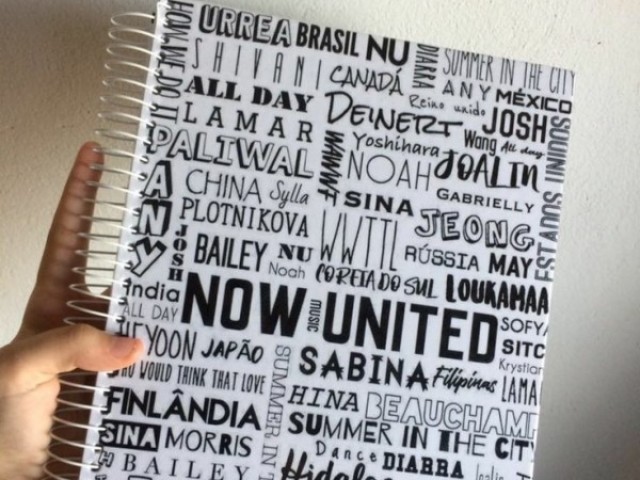 HOW WE DO IT
URREA BRASIL NU
SHIVANI CANADÁ
DIARRA
SUMMER IN THE CITY
ALL DAY
ANY MÉXICO
Reino unido
LAMAR DEINERT JOSH
Wang All day
PALIWAL
WWWT
Yoshihara
NOAH JOALIN
ANY
CHINA Sylla
SINA GABRIELLY
PLOTNIKOVA
WWTTL JEONG
JOSH
BAILEY NU
Noah
RÚSSIA MAY
COREIA DO SUL LOUKAMAA
India
ALL DAY
NOW UNITED
music
HEYOON JAPÃO
SITC
SABINA Filipinas
WOULD THINK THAT LOVE
SUMMER IN T
FINLÂNDIA
HINA BEAUCHAMP
SINA MORRIS
SUMMER IN THE CITY
Dance DIARRA
BAILEY